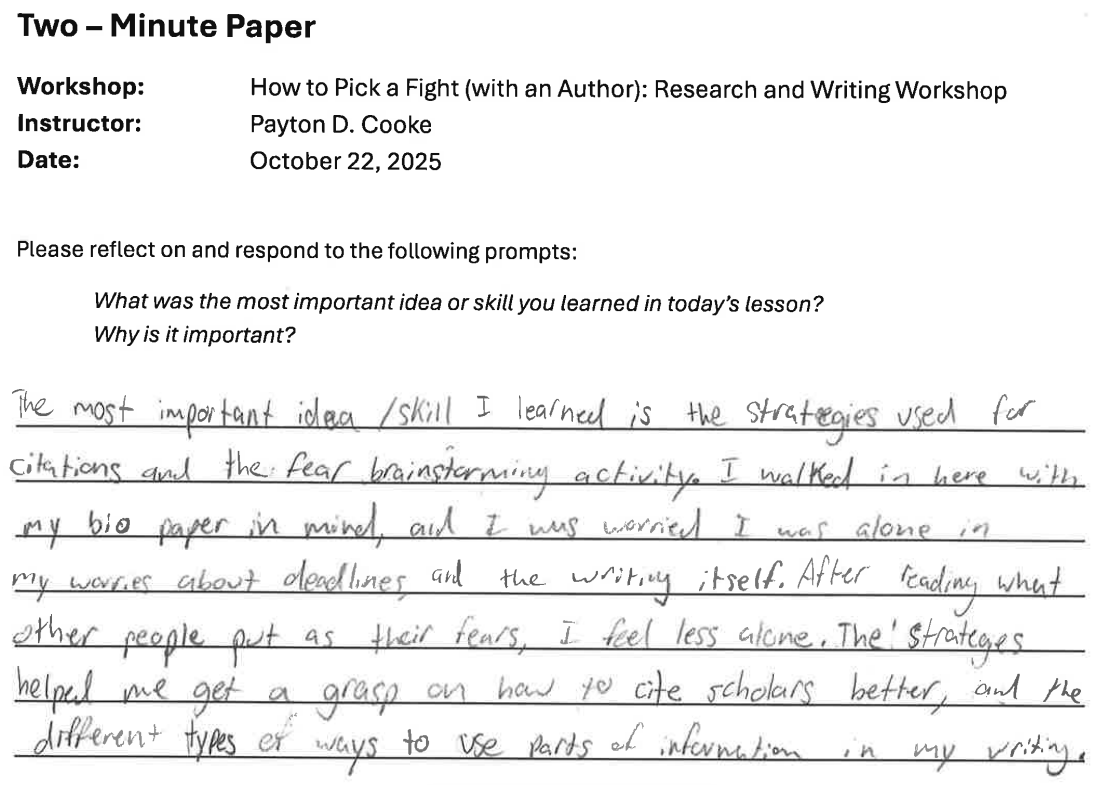 Two – Minute Paper
Workshop: How to Pick a Fight (with an Author): Research and Writing Workshop
Instructor: Payton D. Cooke
Date: October 22, 2025
Please reflect on and respond to the following prompts:
What was the most important idea or skill you learned in today's lesson?
Why is it important?
The most important idea /skill I learned is the strategies used for
citations and the fear brainstorming activity. I walked in here with
my bio paper in mind, and I was worried I was alone in
my worries about deadlines and the writing itself. After reading what
other people put as their fears, I feel less alone. The strateges
helped me get a grasp on how to cite scholars better, and the
different types of ways to use parts of information in my writing.